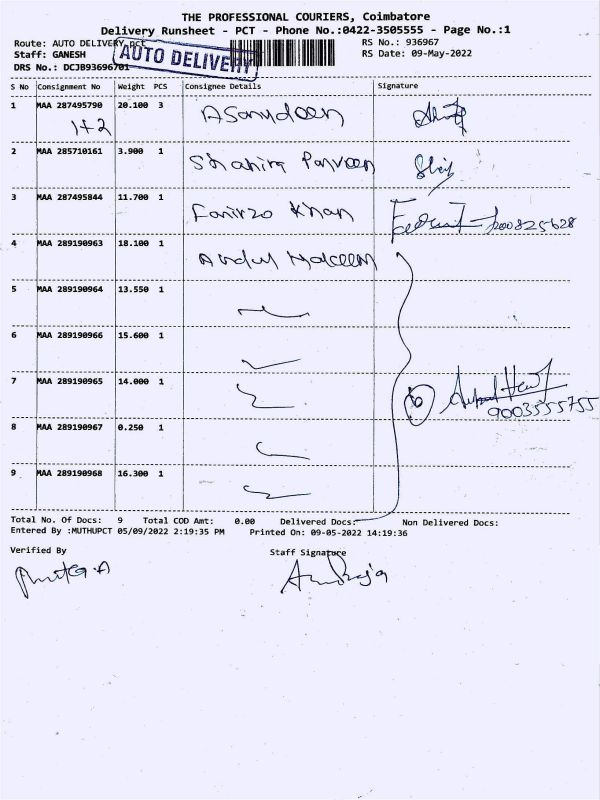 THE PROFESSIONAL COURIERS, Coimbatore
Delivery Runsheet - PCT - Phone No.:0422-3505555 - Page No.:1
Route: AUTO DELIVERY pct RS No.: 936967
Staff: GANESH AUTO DELIVERY RS Date: 09-May-2022
DRS No.: DCJB93696701
S No Consignment No Weight PCS Consignee Details Signature
1 MAA 287495790 20.100 3
1+2
2 MAA 285710161 3.900 1 Shahira Parveen
3 MAA 287495844 11.700 1 Khan
4 MAA 289190963 18.100 1
5 MAA 289190964 13.550 1
6 MAA 289190966 15.600 1
7 MAA 289190965 14.000 1
9003555755
8 MAA 289190967 0.250 1
9 MAA 289190968 16.300 1
Total No. Of Docs: 9 Total COD Amt: 0.00 Delivered Docs: Non Delivered Docs:
Entered By :MUTHUPCT 05/09/2022 2:19:35 PM Printed On: 09-05-2022 14:19:36
Verified By Staff Signature